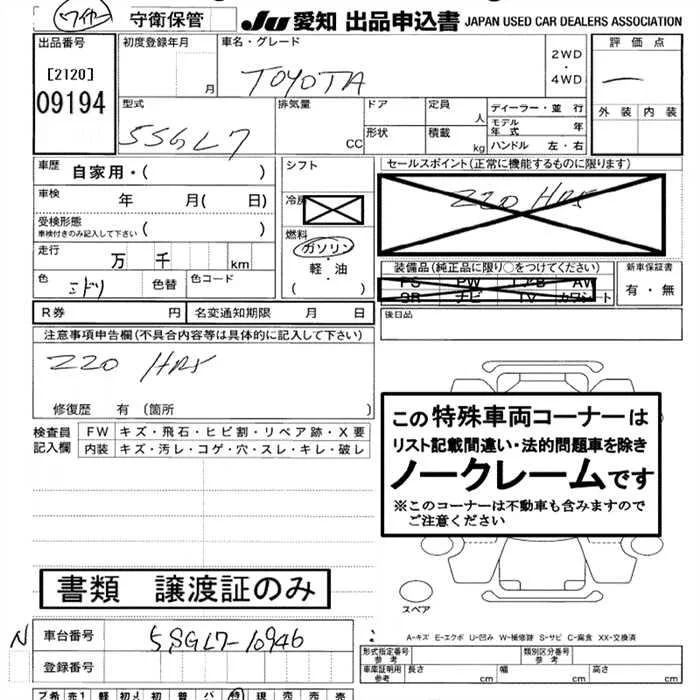 ワイヤー 守衛保管 JU 愛知 出品申込書 JAPAN USED CAR DEALERS ASSOCIATION
出品番号 初度登録年月 車名・グレード 評価点
[2120] 月 TOYOTA 2WD・4WD
09194
型式 排気量 ドア 定員 人 ディーラー・並行 外装 内装
5SGL7 CC 形状 積載 kg モデル年式 年
ハンドル 左・右
車歴 自家用・( ) シフト セールスポイント(正常に機能するものに限ります)
車検 年 月( 日) 冷房 220 HRS
受検形態 ( )
車検付きのみ記入して下さい
燃料
走行 万 千 km ガソリン・軽・油 ( )
装備品(純正品に限り○をつけてください) 新車保証書
色 ミドリ 色替 色コード PS PW エアB AW 有・無
SR ナビ TV カワシート
R券 円 名変通知期限 月 日 後日品
注意事項申告欄(不具合内容等は具体的に記入して下さい)
220 HRS
修復歴 有(箇所 )
検査員記入欄 FW キズ・飛石・ヒビ割・リペア跡・X要
内装 キズ・汚レ・コゲ・穴・スレ・キレ・破レ
この特殊車両コーナーは
リスト記載間違い・法的問題車を除き
ノークレームです
※このコーナーは不動車も含みますので
ご注意ください
書類 譲渡証のみ
スペア
A-キズ E-エクボ U-凹み W-補修跡 S-サビ C-腐食 XX-交換済
N 車台番号 5SGL7-10946
登録番号
形式指定番号 参考 類別区分番号 参考
車庫証明用 参考 長さ cm 幅 cm 高さ cm